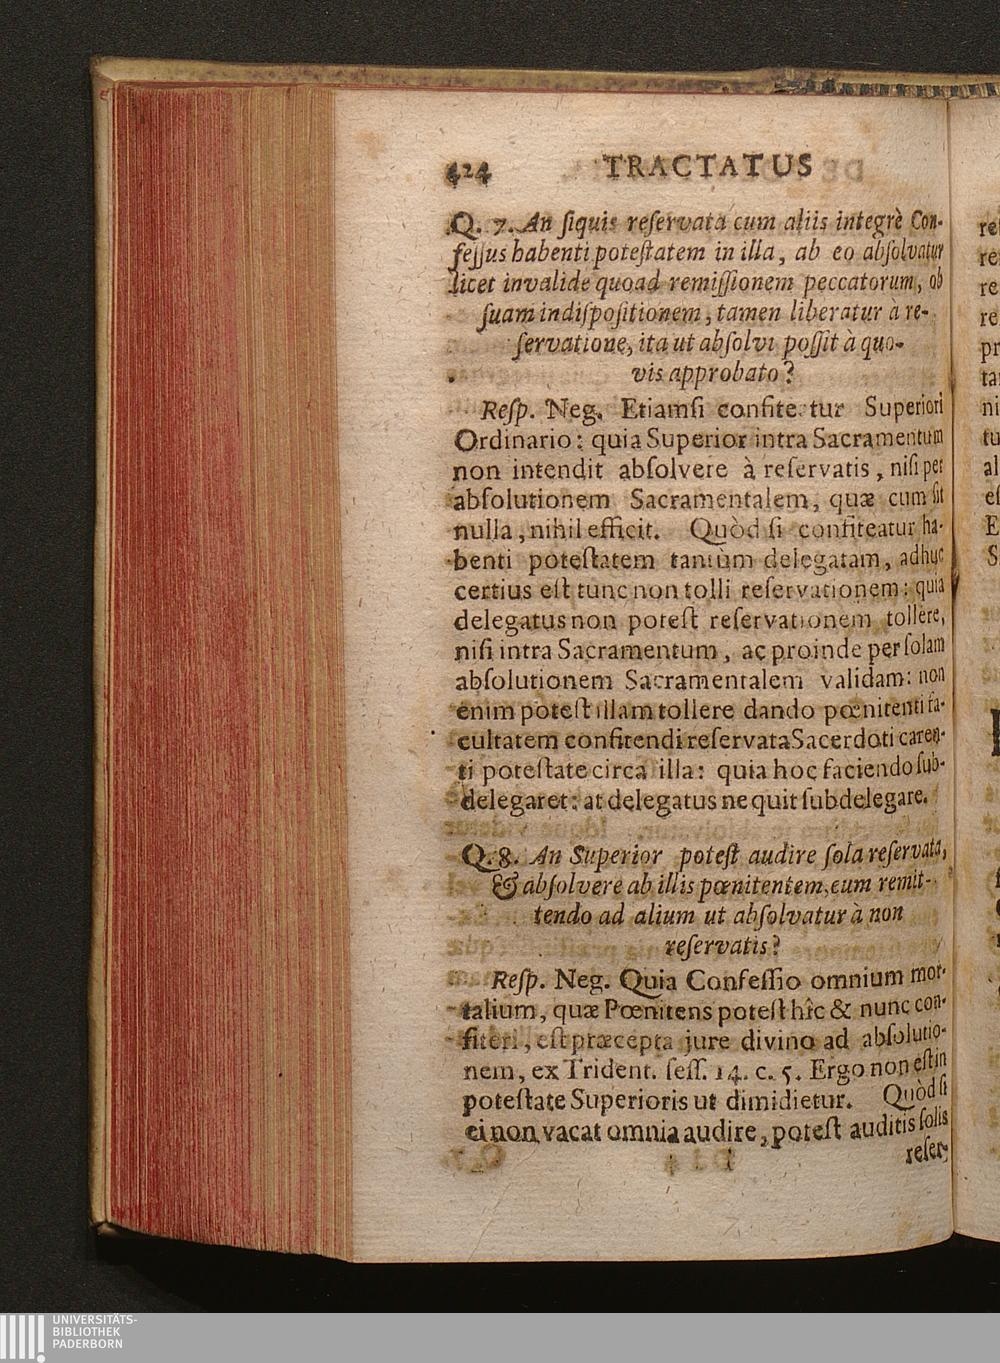 424 TRACTATUS
Q. 7. An ſiquis reſervata cum aliis integrè Con-
feſſus habenti poteſtatem in illa, ab eo abſolvatur
licet invalide quoad remiſſionem peccatorum, ob
ſuam indiſpoſitionem, tamen liberatur à re-
ſervatione, ita ut abſolvi poſſit à quo-
vis approbato?
Reſp. Neg. Etiamſi confitetur Superiori
Ordinario: quia Superior intra Sacramentum
non intendit abſolvere à reſervatis, niſi per
abſolutionem Sacramentalem, quæ cum ſit
nulla, nihil efficit. Quòd ſi confiteatur ha-
benti poteſtatem tantùm delegatam, adhuc
certius eſt tunc non tolli reſervationem: quia
delegatus non poteſt reſervationem tollere,
niſi intra Sacramentum, ac proinde per ſolam
abſolutionem Sacramentalem validam: non
enim poteſt illam tollere dando pœnitenti fa-
cultatem confitendi reſervata Sacerdoti caren-
ti poteſtate circa illa: quia hoc faciendo ſub-
delegaret: at delegatus nequit ſubdelegare.
Q. 8. An Superior poteſt audire ſola reſervata,
& abſolvere ab illis pœnitentem, eum remit-
tendo ad alium ut abſolvatur à non
reſervatis?
Reſp. Neg. Quia Confeſſio omnium mor-
talium, quæ Pœnitens poteſt hîc & nunc con-
fiteri, eſt præcepta jure divino ad abſolutio-
nem, ex Trident. ſeſſ. 14. c. 5. Ergo non eſt in
poteſtate Superioris ut dimidietur. Quòd ſi
ei non vacat omnia audire, poteſt auditis ſolis
reſer-
UNIVERSITÄTS-
BIBLIOTHEK
PADERBORN